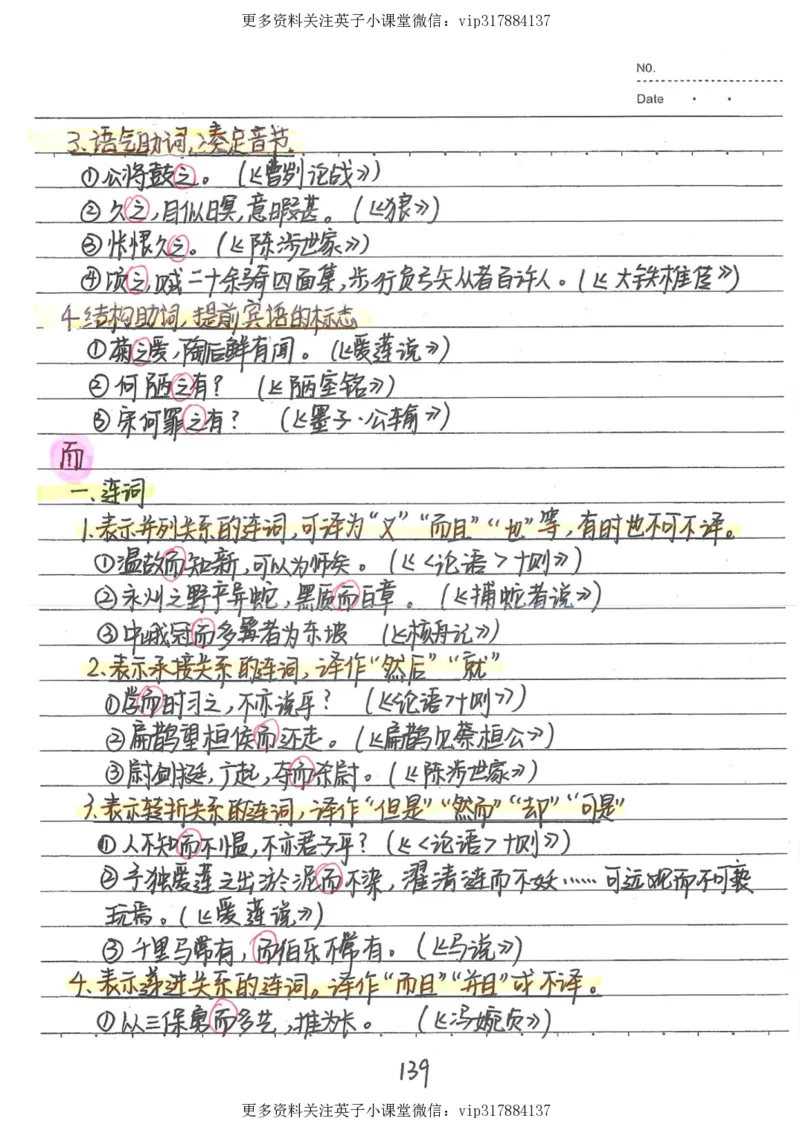 更多资料关注英子小课堂微信：vip317884137
NO.
Date
3、语气助词，凑足音节。
①公将鼓之。（《曹刿论战》）
②久之，目似瞑，意暇甚。（《狼》）
③怅恨久之。（《陈涉世家》）
④顷之，贼二十余骑四面集，步行负弓矢从者百许人。（《大铁椎传》）
4.结构助词，提前宾语的标志
①菊之爱，陶后鲜有闻。（《爱莲说》）
②何陋之有？（《陋室铭》）
③宋何罪之有？（《墨子·公输》）
而
一、连词
1.表示并列关系的连词，可译为“又”“而且”“也”等，有时也不可不译。
①温故而知新，可以为师矣。（《<论语>十则》）
②永州之野产异蛇，黑质而白章。（《捕蛇者说》）
③中峨冠而多髯者为东坡（《核舟记》）
2.表示承接关系的连词，译作“然后”“就”
①学而时习之，不亦说乎？（《<论语>十则》）
②扁鹊望桓侯而还走。（《扁鹊见蔡桓公》）
③尉剑挺，广起，夺而杀尉。（《陈涉世家》）
3.表示转折关系的连词，译作“但是”“然而”“却”“可是”
①人不知而不愠，不亦君子乎？（《<论语>十则》）
②予独爱莲之出淤於泥而不染，濯清涟而不妖……可远观而不可亵
玩焉。（《爱莲说》）
③千里马常有，而伯乐不常有。（《马说》）
4、表示递进关系的连词。译作“而且”“并且”或不译。
①以三保勇而多艺，推为长。（《冯婉贞》）
139
更多资料关注英子小课堂微信：vip317884137